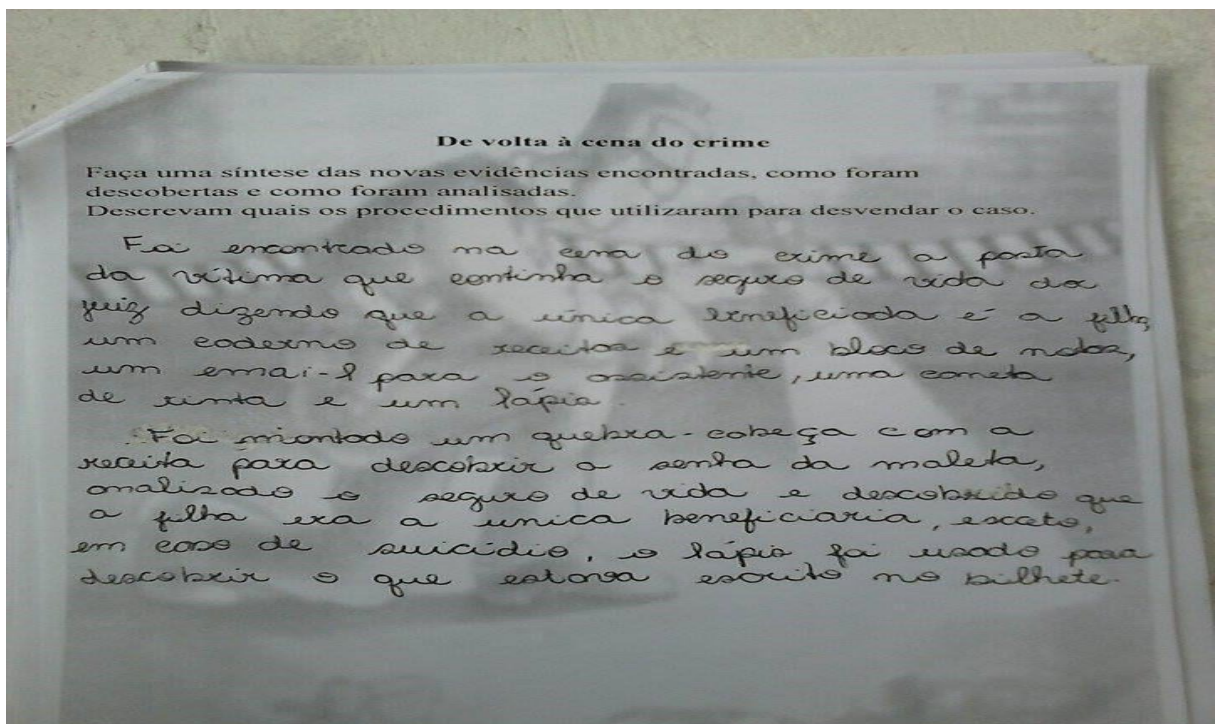 De volta à cena do crime
Faça uma síntese das novas evidências encontradas, como foram
descobertas e como foram analisadas.
Descrevam quais os procedimentos que utilizaram para desvendar o caso.
Foi encontrado na cena do crime a pasta
da vítima que continha o seguro de vida do
juiz dizendo que a única beneficiada é a filha,
um caderno de receitas e um bloco de notas,
um emai-l para o assistente, uma caneta
de tinta e um lápis.
Foi montado um quebra-cabeça com a
receita para descobrir a senha da maleta,
analisado o seguro de vida e descobrido que
a filha era a unica beneficiaria, exceto,
em caso de suicídio, o lápis foi usado para
descobrir o que estava escrito no bilhete.